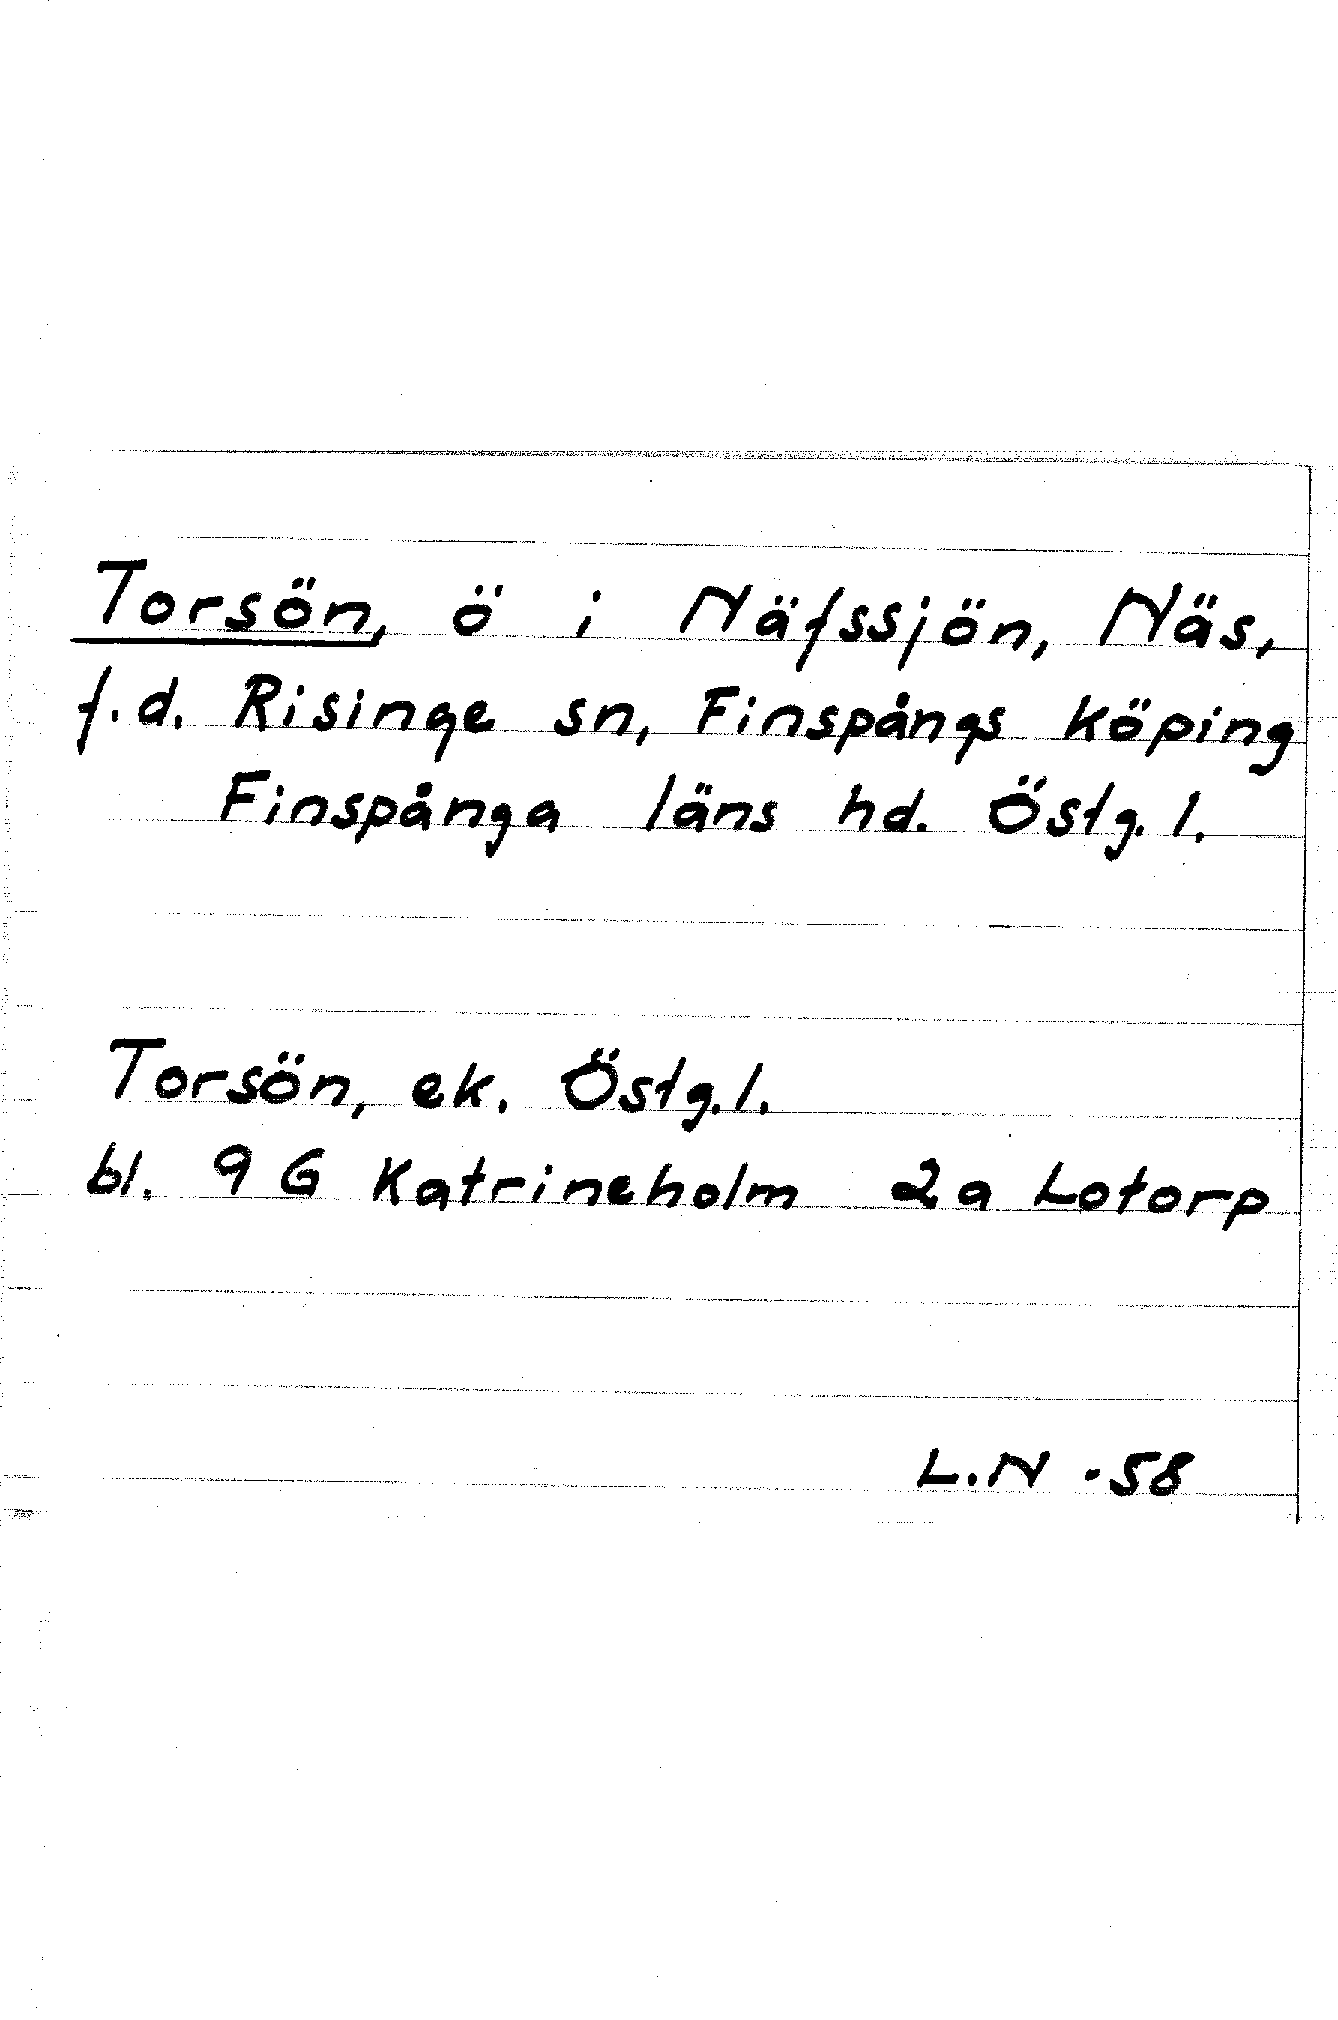 Torsön, ö i Näfssjön, Näs,
f.d. Risinge sn, Finspångs köping
Finspånga läns hd. Östg. l.
Torsön, ek. Östg. l.
bl. 9 G Katrineholm 2a Lotorp
L.N -58